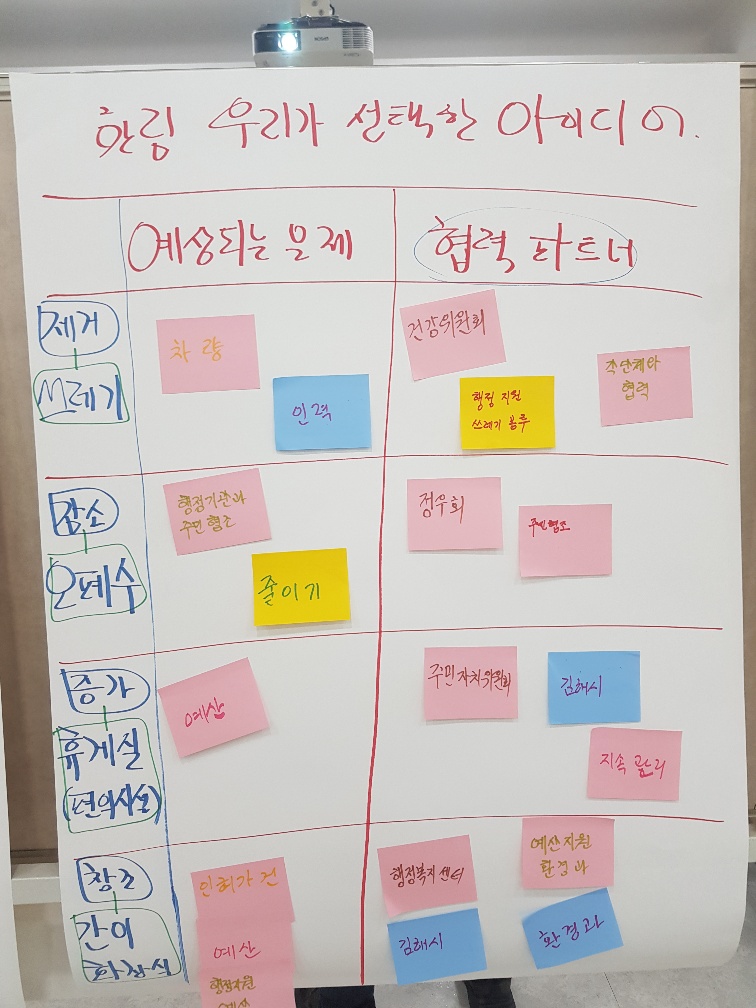 한림 우리가 선택한 아이디어.
예상되는 문제
협력 파트너
제거
쓰레기
차량
인력
건강위원회
행정 지원
쓰레기 봉투
각단체와
협력
감소
오폐수
행정기관과
주민협조
줄이기
정우회
주민협조
증가
휴게실
(편의시설)
예산
주민자치위원회
김해시
지속 관리
창조
간이
화장실
인허가 건
예산
행정지원
예산
행정복지센터
예산지원
환경과
김해시
환경과